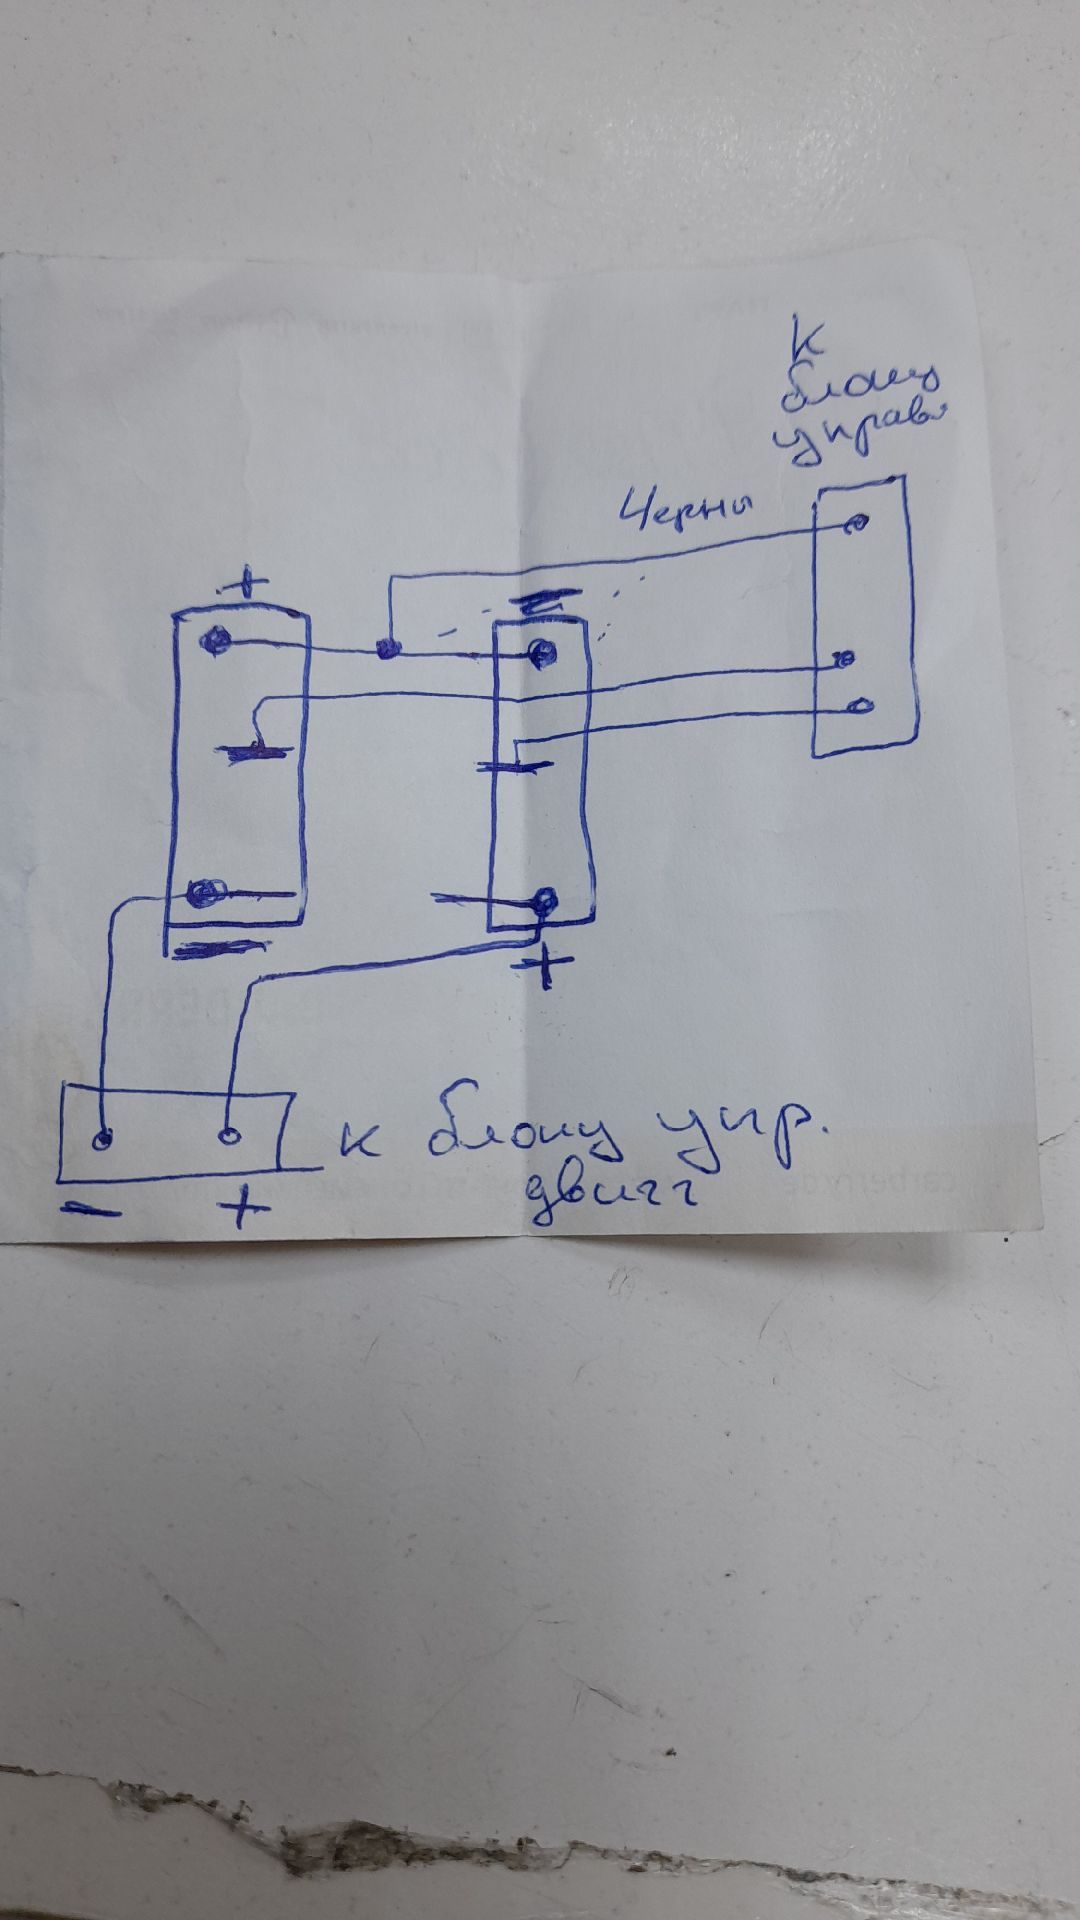 к
блоку
управ.
Черны
+
−
−
+
− +
к блоку упр.
двигг